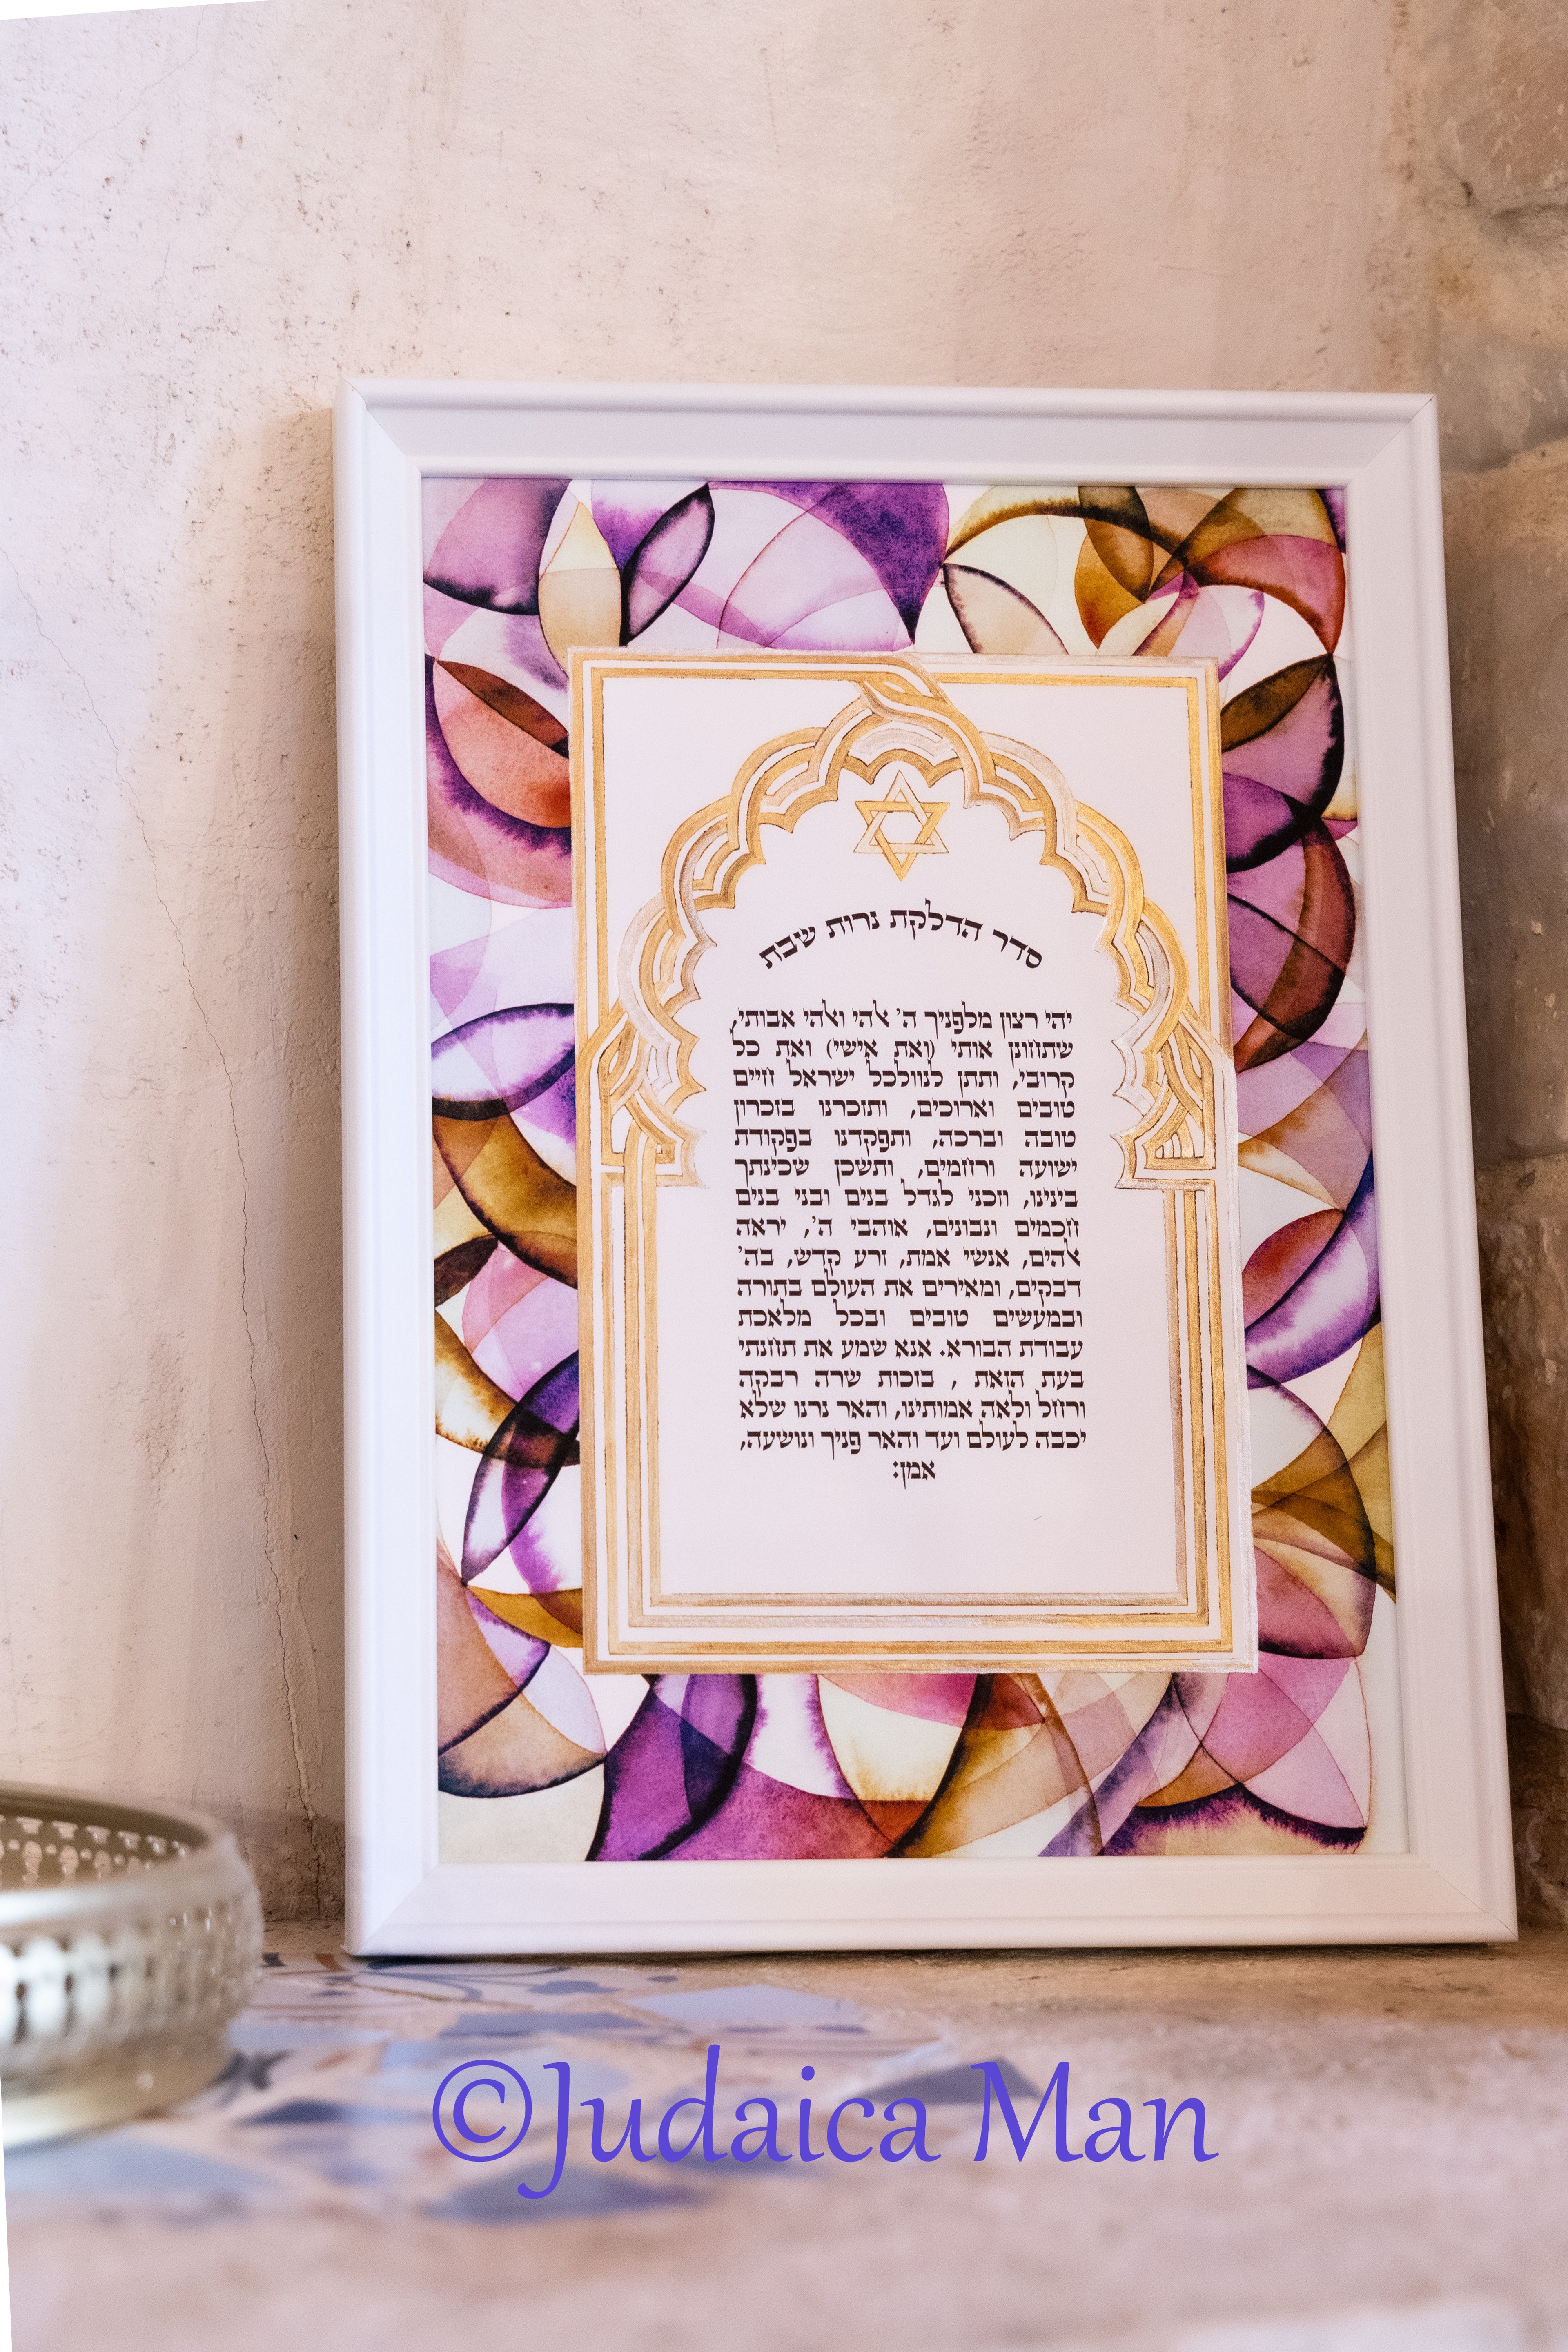 סדר הדלקת נרות שבת
יהי רצון מלפניך ה' אלהי ואלהי אבותי,
שתחונן אותי (ואת אישי) ואת כל
קרובי, ותתן לנוולכל ישראל חיים
טובים וארוכים, ותזכרנו בזכרון
טובה וברכה, ותפקדנו בפקודת
ישועה ורחמים, ותשכן שכינתך
בינינו, וזכני לגדל בנים ובני בנים
חכמים ונבונים, אוהבי ה', יראה
אלהים, אנשי אמת, זרע קדש, בה'
דבקים, ומאירים את העולם בתורה
ובמעשים טובים ובכל מלאכת
עבודת הבורא. אנא שמע את תחנתי
בעת הזאת , בזכות שרה רבקה
ורחל ולאה אמותינו, והאר נרנו שלא
יכבה לעולם ועד והאר פניך ונושעה,
אמן:
©Judaica Man